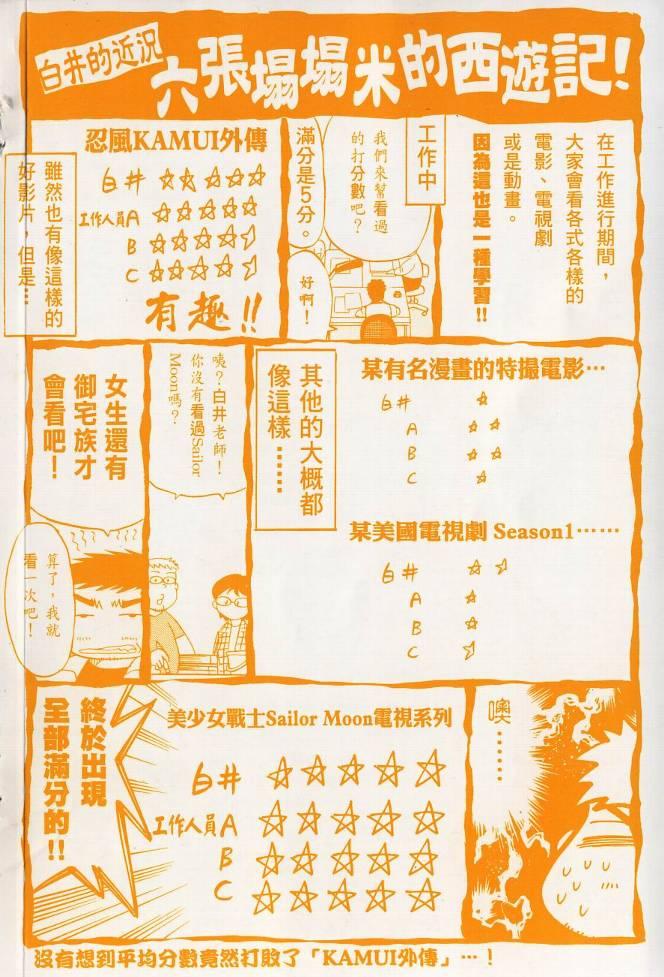 白井的近況
六張塌塌米的西遊記!
在工作進行期間，
大家會看各式各樣的
電影、電視劇
或是動畫。
因為這也是一種學習!!
工作中
我們來幫看過
的打分數吧？
滿分是5分。
好啊！
忍風KAMUI外傳
白井 ☆☆☆☆☆
工作人員A ☆☆☆☆☆
B ☆☆☆☆
C ☆☆☆☆
有趣!!
雖然也有像這樣的
好影片，但是…
某有名漫畫的特撮電影…
白井 ☆
A ☆☆
B ☆☆
C ☆
某美國電視劇 Season1……
白井 ☆
A ☆
B ☆
C
其他的大概都
像這樣……
咦？白井老師！
你沒有看過Sailor
Moon嗎？
女生還有
御宅族才
會看吧！
算了，我就
看一次吧！
噢……
美少女戰士Sailor Moon電視系列
白井 ☆☆☆☆☆
工作人員A ☆☆☆☆☆
B ☆☆☆☆☆
C ☆☆☆☆☆
終於出現
全部滿分的!!
沒有想到平均分數竟然打敗了「KAMUI外傳」…！